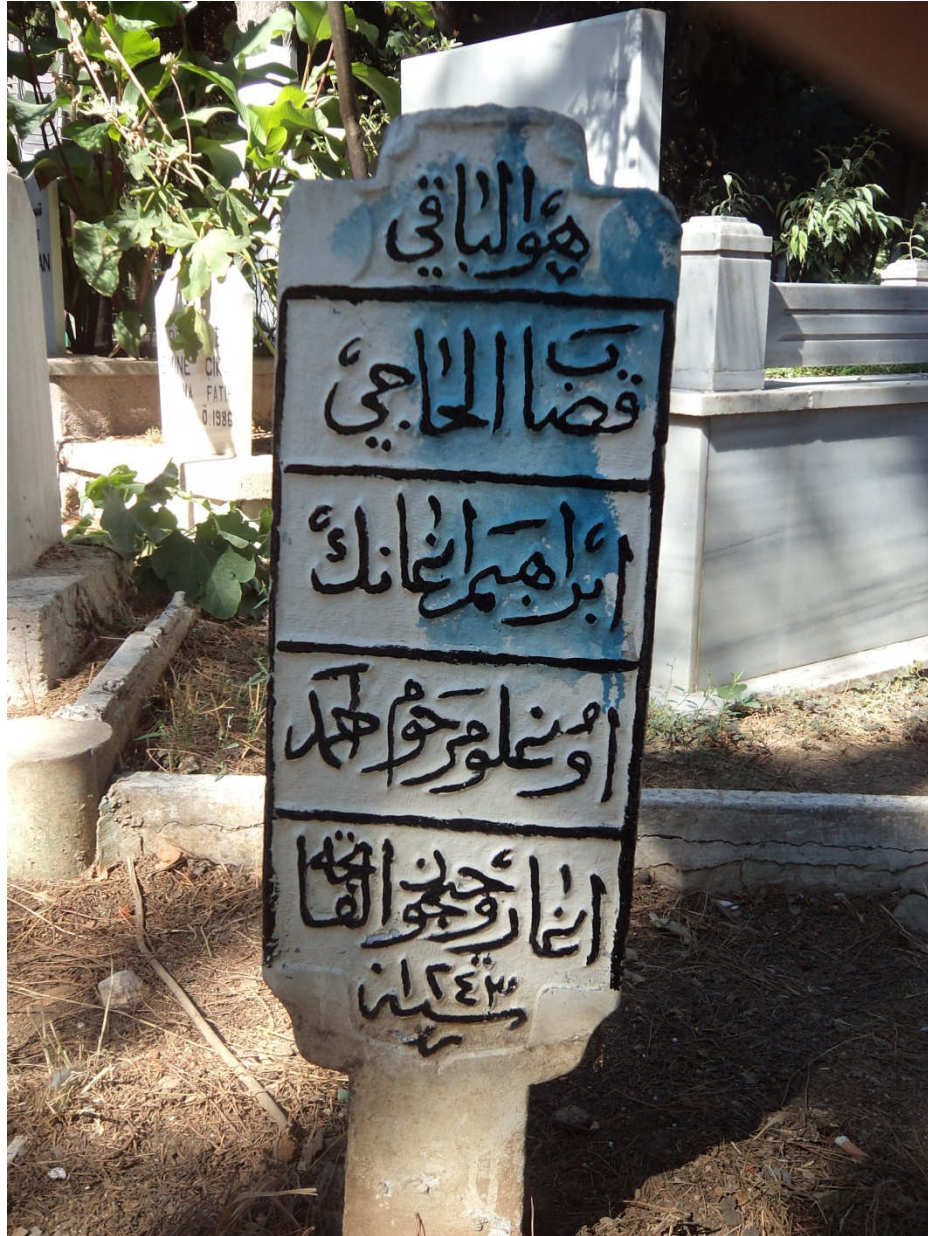 هو الباقي
قصاب الحاجي
ابراهيم اغانك
اوغلو مرحوم
اغا روحيچون الفاتحه
سنه ١٢٤٣
Ö.1986